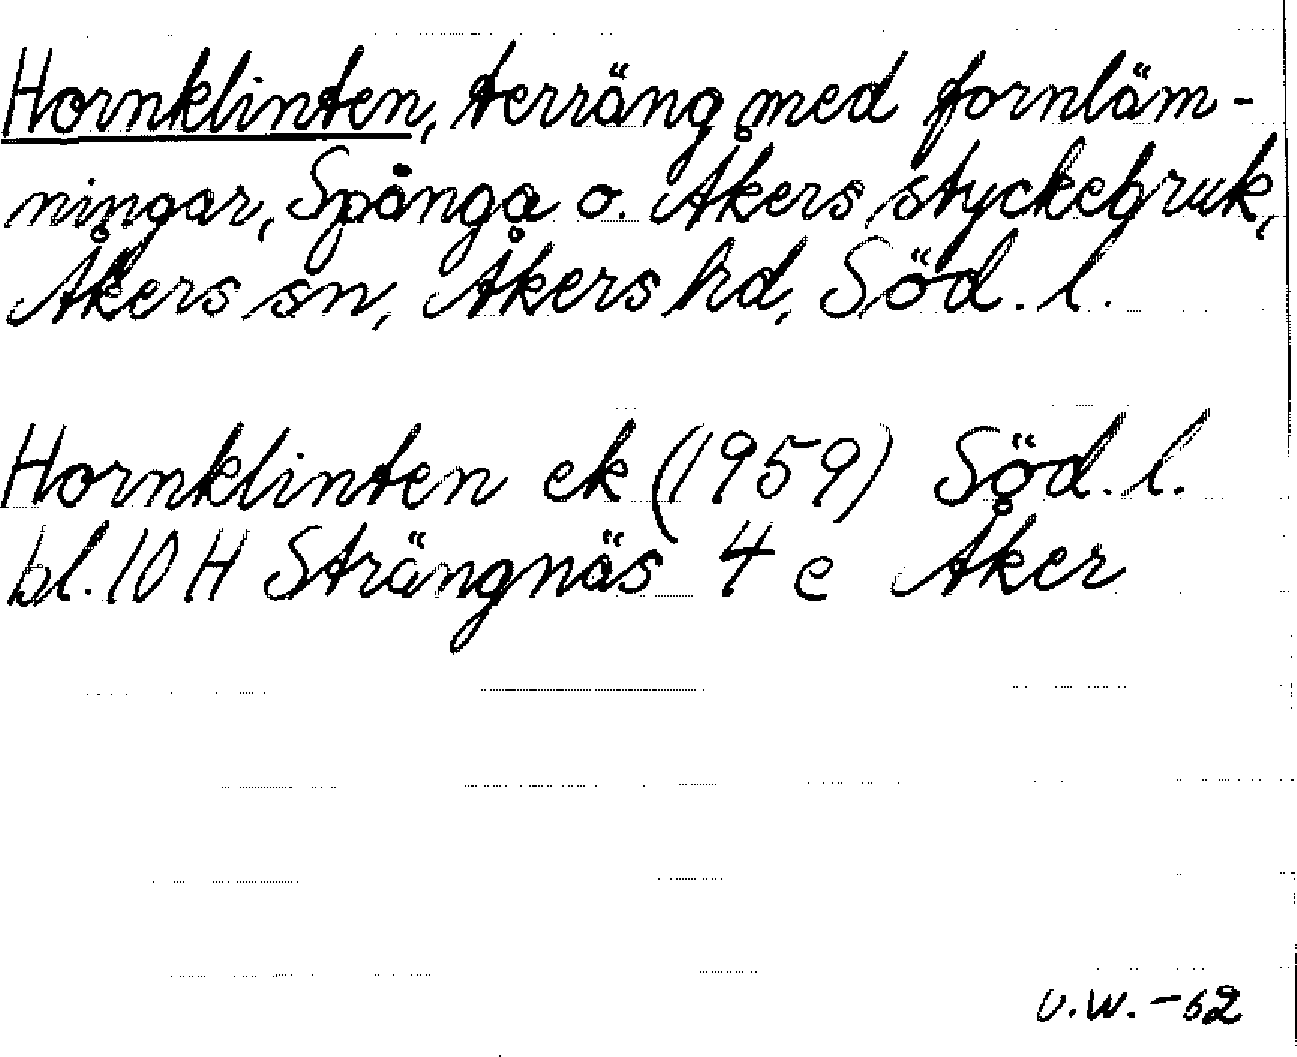 Hornklinten, terräng med fornläm-
ningar, Spånga o. Åkers styckebruk,
Åkers sn, Åkers hd, Söd. l.
Hornklinten ek (1959) Söd. l.
bl. 10 H Strängnäs 4 e Åker
U.W. -62